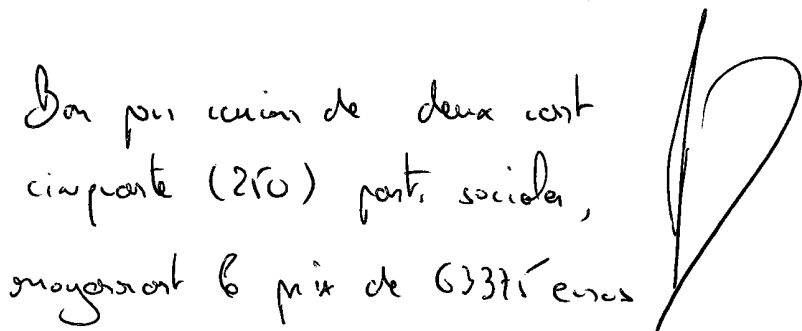 Bon pour cession de deux cent
cinquante (250) parts sociales,
moyennant le prix de 63375 euros